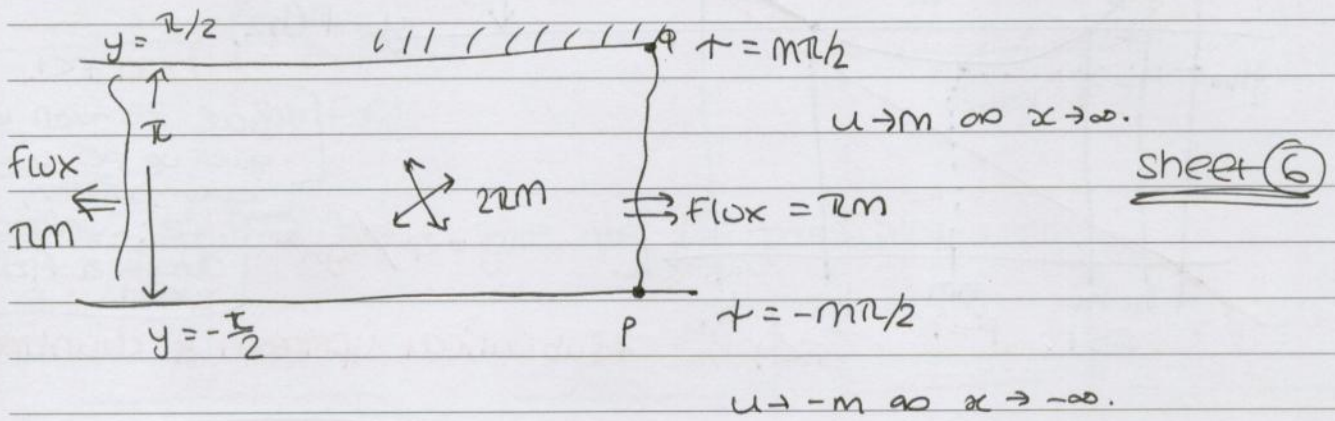 y = π/2
Q
ψ = mπ/2
π
u → m as x → ∞.
flux
πm
2πm
Flux = πm
sheet 6
y = -π/2
P
ψ = -mπ/2
u → -m as x → -∞.